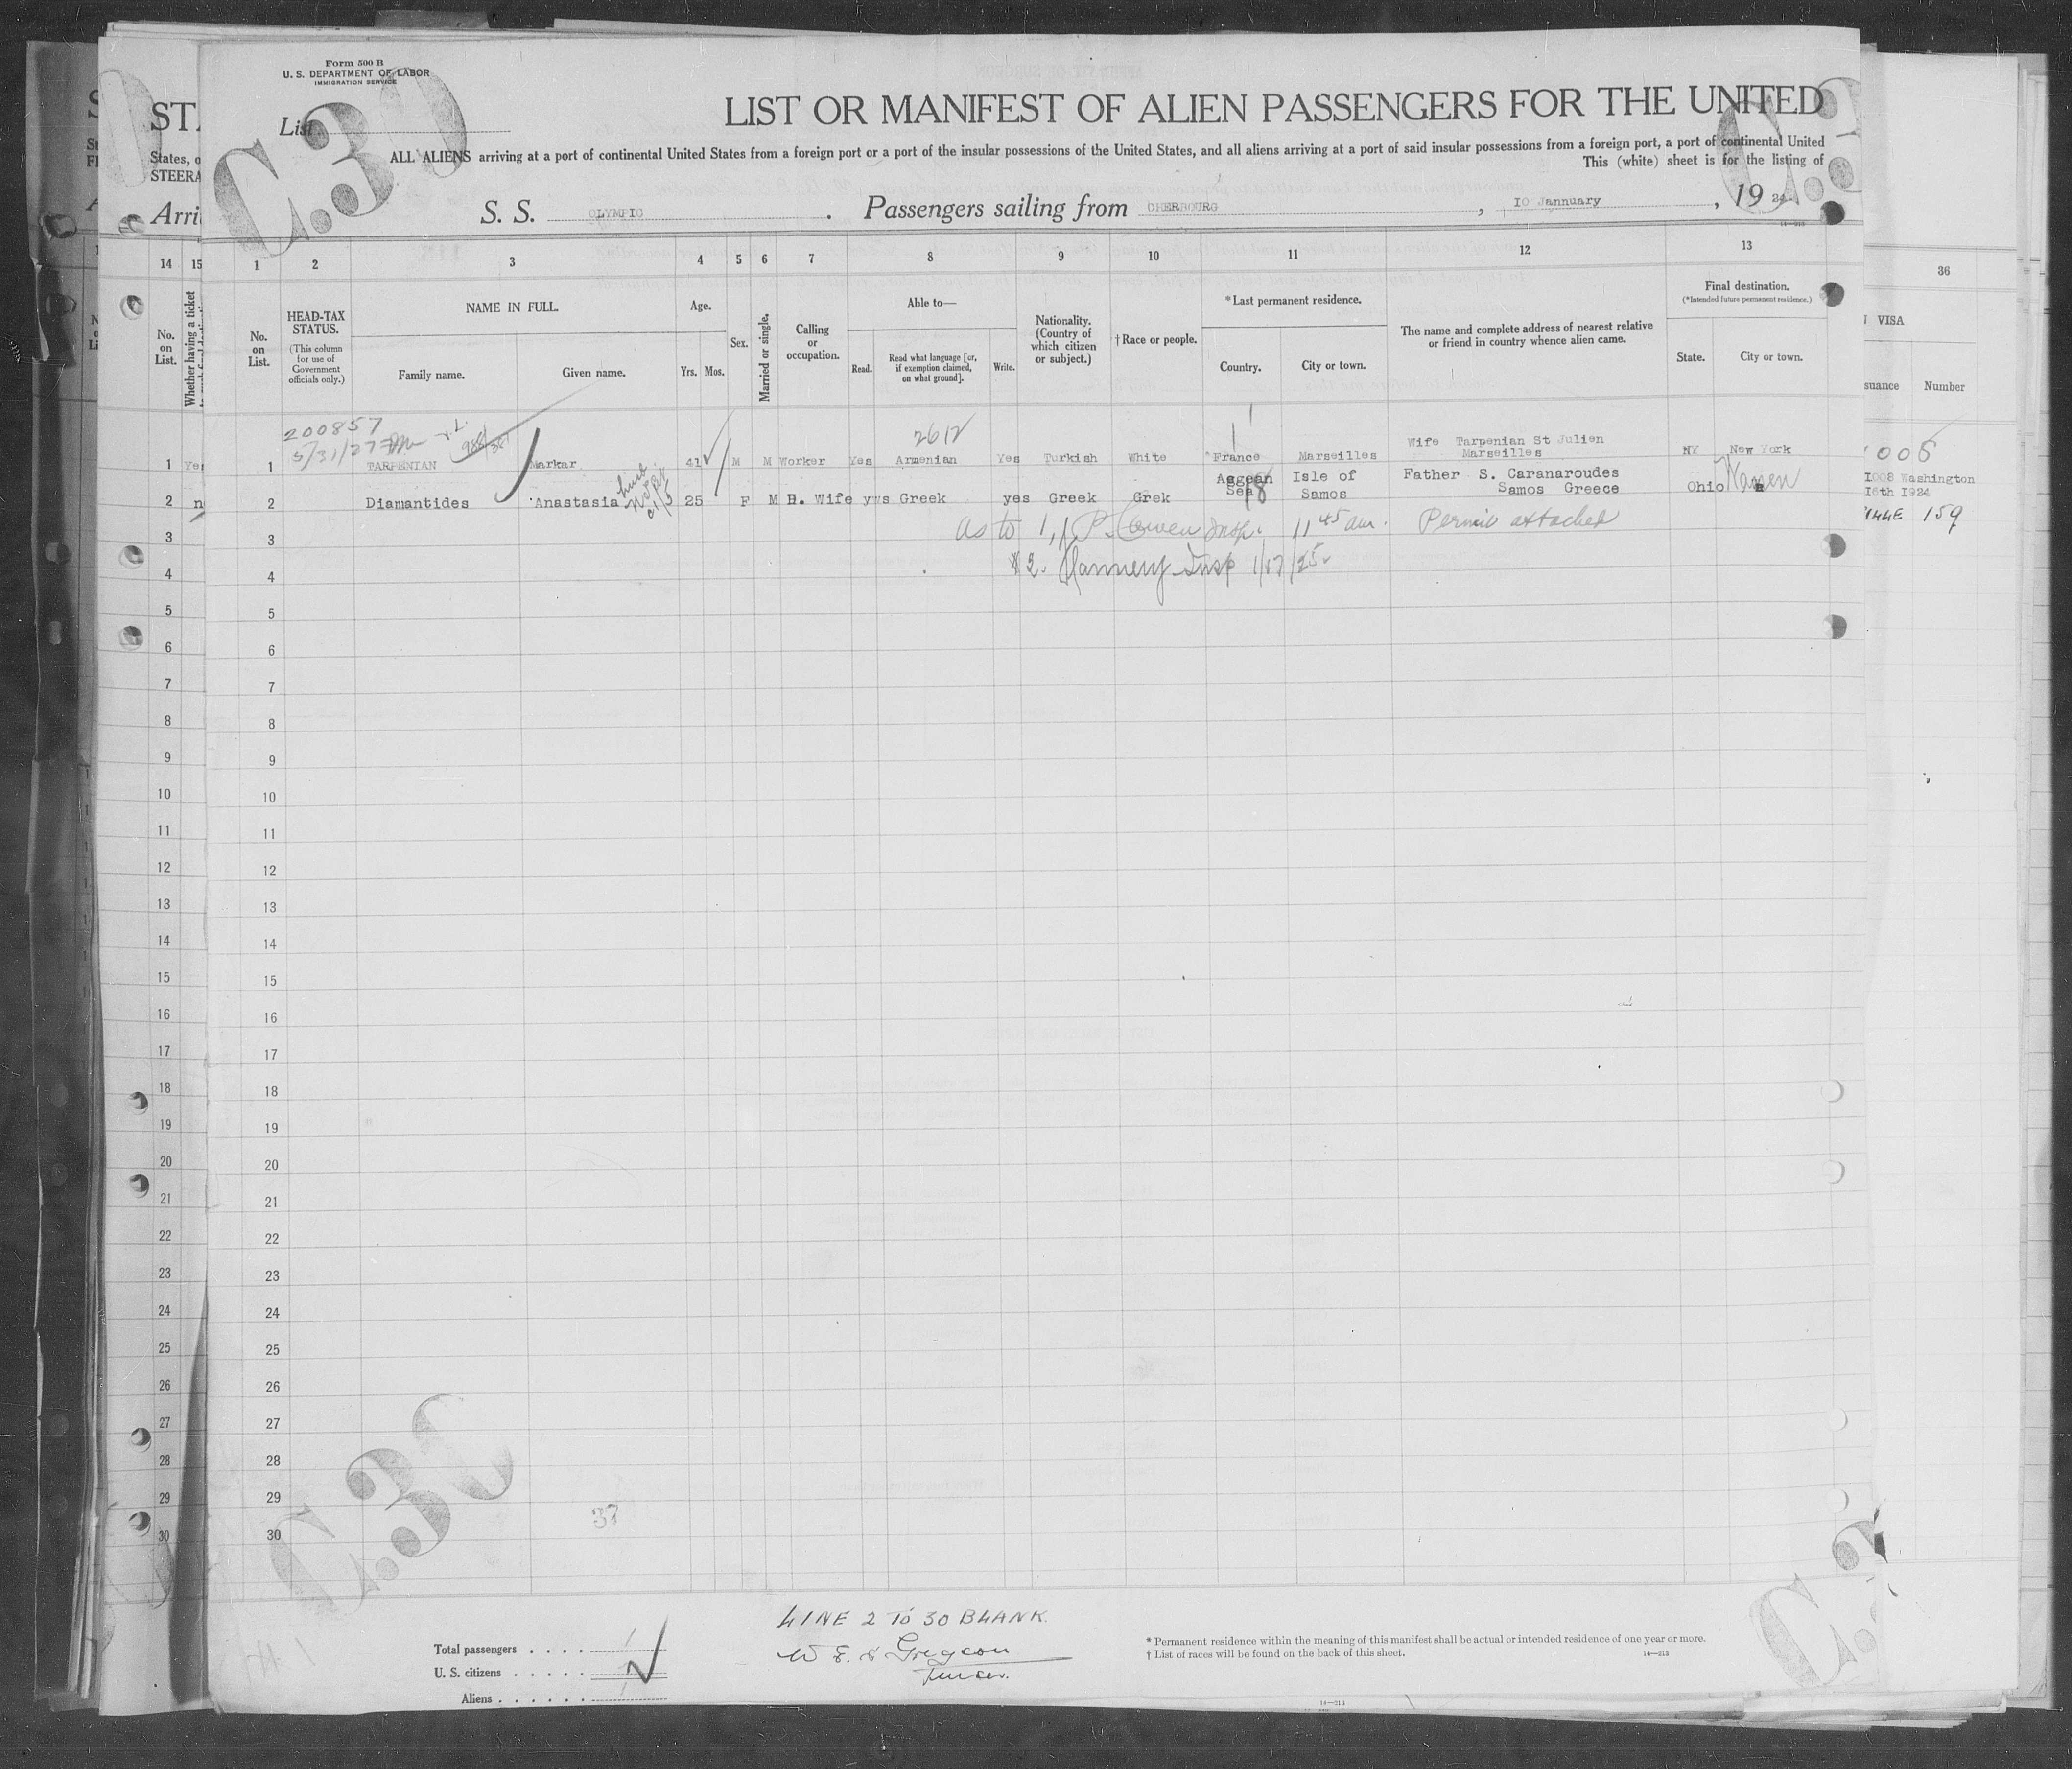 Form 500 B
U. S. DEPARTMENT OF LABOR
IMMIGRATION SERVICE
C.30
List
LIST OR MANIFEST OF ALIEN PASSENGERS FOR THE UNITED
ALL ALIENS arriving at a port of continental United States from a foreign port or a port of the insular possessions of the United States, and all aliens arriving at a port of said insular possessions from a foreign port, a port of continental United
This (white) sheet is for the listing of
S. S. OLYMPIC . Passengers sailing from CHERBOURG , IO Jannuary , 19 24
14—213
ST
States, o
STEERA
Arri
14 15 1 2 3 4 5 6 7 8 9 10 11 12 13 36
No. on List. Whether having a ticket
No. on List. HEAD-TAX STATUS. (This column for use of Government officials only.) NAME IN FULL. Family name. Given name. Age. Yrs. Mos. Sex. Married or single. Calling or occupation. Able to— Read. Read what language [or, if exemption claimed, on what ground]. Write. Nationality. (Country of which citizen or subject.) †Race or people. *Last permanent residence. Country. City or town. The name and complete address of nearest relative or friend in country whence alien came. Final destination. (*Intended future permanent residence.) State. City or town. VISA suance Number
200857
5/31/27
2612
1 Yes 1 TARPENIAN Markar 41 M M Worker Yes Armenian Yes Turkish White France Marseilles Wife Tarpenian St Julien Marseilles NY New York
2 n 2 Diamantides Anastasia 25 F M H. Wife yws Greek yes Greek Grek Aegean Sea Isle of Samos Father S. Caranaroudes Samos Greece Ohio Warren
1008 Washington
16th 1924
159
3 3 as to 1, P. Insp. 11 45 am. Permit attached
4 4 2. Flannery Insp 1/17/25
5 5
6 6
7 7
8 8
9 9
10 10
11 11
12 12
13 13
14 14
15 15
16 16
17 17
18 18
19 19
20 20
21 21
22 22
23 23
24 24
25 25
26 26
27 27
28 28
29 29
30 30
C.30
37
LINE 2 TO 30 BLANK.
Total passengers . . . . 1
U. S. citizens . . . . .
Aliens . . . . . . 1
Purser.
* Permanent residence within the meaning of this manifest shall be actual or intended residence of one year or more.
† List of races will be found on the back of this sheet.
14—213
14—213